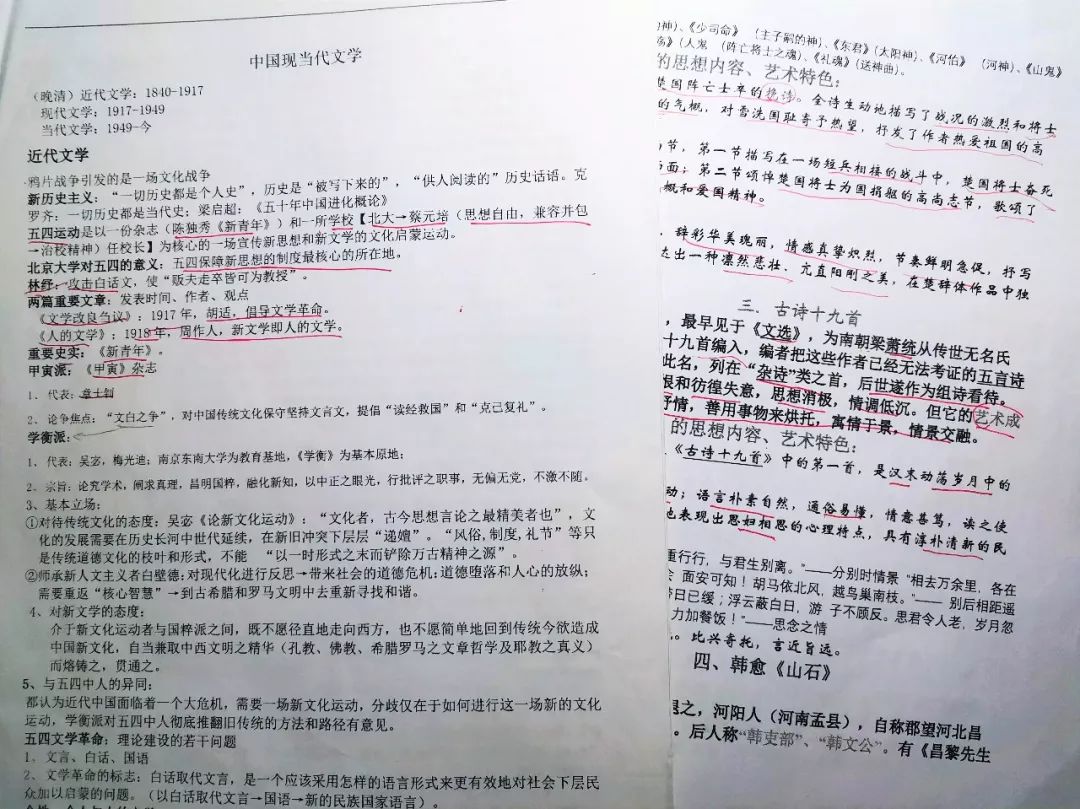 中国现当代文学
（晚清）近代文学：1840-1917
现代文学：1917-1949
当代文学：1949-今
近代文学
鸦片战争引发的是一场文化战争
新历史主义：“一切历史都是个人史”，历史是“被写下来的”，“供人阅读的”历史话语。克
罗齐：一切历史都是当代史；梁启超：《五十年中国进化概论》
五四运动是以一份杂志（陈独秀《新青年》）和一所学校【北大→蔡元培（思想自由，兼容并包
→治校精神）任校长】为核心的一场宣传新思想和新文学的文化启蒙运动。
北京大学对五四的意义：五四保障新思想的制度最核心的所在地。
林纾：攻击白话文，使“贩夫走卒皆可为教授”。
两篇重要文章：发表时间、作者、观点
《文学改良刍议》：1917年，胡适，倡导文学革命。
《人的文学》：1918年，周作人，新文学即人的文学。
重要史实：《新青年》。
甲寅派：《甲寅》杂志
1. 代表：章士钊
2. 论争焦点：“文白之争”，对中国传统文化保守坚持文言文，提倡“读经救国”和“克己复礼”。
学衡派：
1. 代表：吴宓，梅光迪；南京东南大学为教育基地，《学衡》为基本原地：
2. 宗旨：论究学术，阐求真理，昌明国粹，融化新知，以中正之眼光，行批评之职事，无偏无党，不激不随。
3、基本立场：
①对待传统文化的态度：吴宓《论新文化运动》：“文化者，古今思想言论之最精美者也”，文
化的发展需要在历史长河中世代延续，在新旧冲突下层层“递嬗”。“风俗,制度,礼节”等只
是传统道德文化的枝叶和形式，不能 “以一时形式之末而铲除万古精神之源”。
②师承新人文主义者白壁德:对现代化进行反思→带来社会的道德危机:道德堕落和人心的放纵;
需要重返“核心智慧”→到古希腊和罗马文明中去重新寻找和谐。
4、对新文学的态度：
介于新文化运动者与国粹派之间，既不愿径直地走向西方，也不愿简单地回到传统今欲造成
中国新文化，自当兼取中西文明之精华（孔教、佛教、希腊罗马之文章哲学及耶教之真义）
而熔铸之，贯通之。
5、与五四中人的异同：
都认为近代中国面临着一个大危机，需要一场新文化运动，分歧仅在于如何进行这一场新的文化
运动，学衡派对五四中人彻底推翻旧传统的方法和路径有意见。
五四文学革命：理论建设的若干问题
1、文言、白话、国语
2、文学革命的标志：白话取代文言，是一个应该采用怎样的语言形式来更有效地对社会下层民
众加以启蒙的问题。（以白话取代文言→国语→新的民族国家语言）。
神)、《少司命》（主子嗣的神）、《东君》(太阳神)、《河伯》（河神）、《山鬼》
(人鬼（阵亡将士之魂）、《礼魂》(送神曲)。
的思想内容、艺术特色：
楚国阵亡士卒的挽诗。全诗生动地描写了战况的激烈和将士
的气概，对雪洗国耻寄予热望，抒发了作者热爱祖国的高
节，第一节描写在一场短兵相接的战斗中，楚国将士奋死
面；第二节颂悼楚国将士为国捐躯的高尚志节，歌颂了
概和爱国精神。
辞彩华美瑰丽，情感真挚炽烈，节奏鲜明急促，抒写
达出一种凛然悲壮、亢直阳刚之美，在楚辞体作品中独
三、古诗十九首
，最早见于《文选》，为南朝梁萧统从传世无名氏
十九首编入，编者把这些作者已经无法考证的五言诗
此名，列在“杂诗”类之首，后世遂作为组诗看待。
恨和彷徨失意，思想消极，情调低沉。但它的艺术成
抒情，善用事物来烘托，寓情于景，情景交融。
的思想内容、艺术特色：
《古诗十九首》中的第一首，是汉末动荡岁月中的
动；语言朴素自然，通俗易懂，情意善笃，读之使
也表现出思妇相思的心理特点，具有淳朴清新的民
重行行，与君生别离。”——分别时情景 “相去万余里，各在
面安可知！胡马依北风，越鸟巢南枝。”—— 别后相距遥
带日已缓；浮云蔽白日，游 子不顾反。思君令人老，岁月忽
力加餐饭！”——思念之情
。比兴寄托，言近旨远。
四、韩愈《山石》
退之，河阳人（河南孟县），自称郡望河北昌
。后人称“韩吏部”、“韩文公”。有《昌黎先生